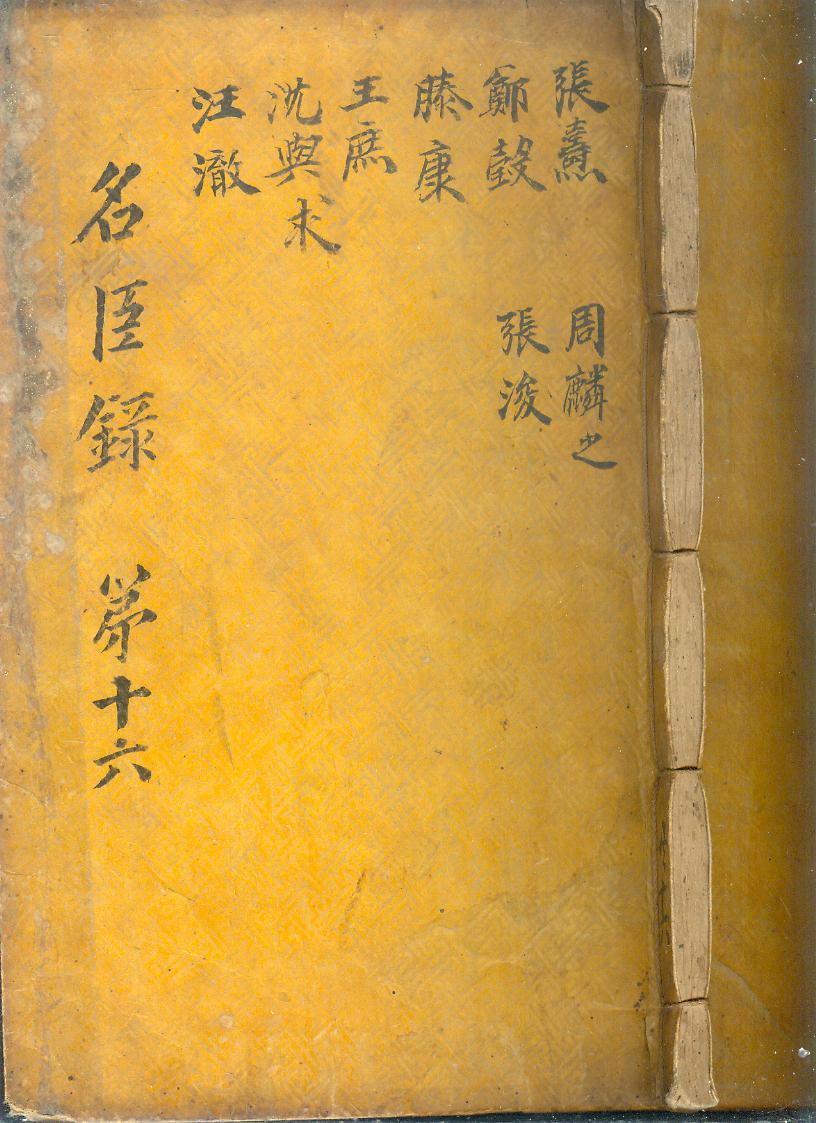 張燾
鄭瑴
滕康
王庶
沈與求
汪澈
周麟之
張浚
名臣錄 苐十六